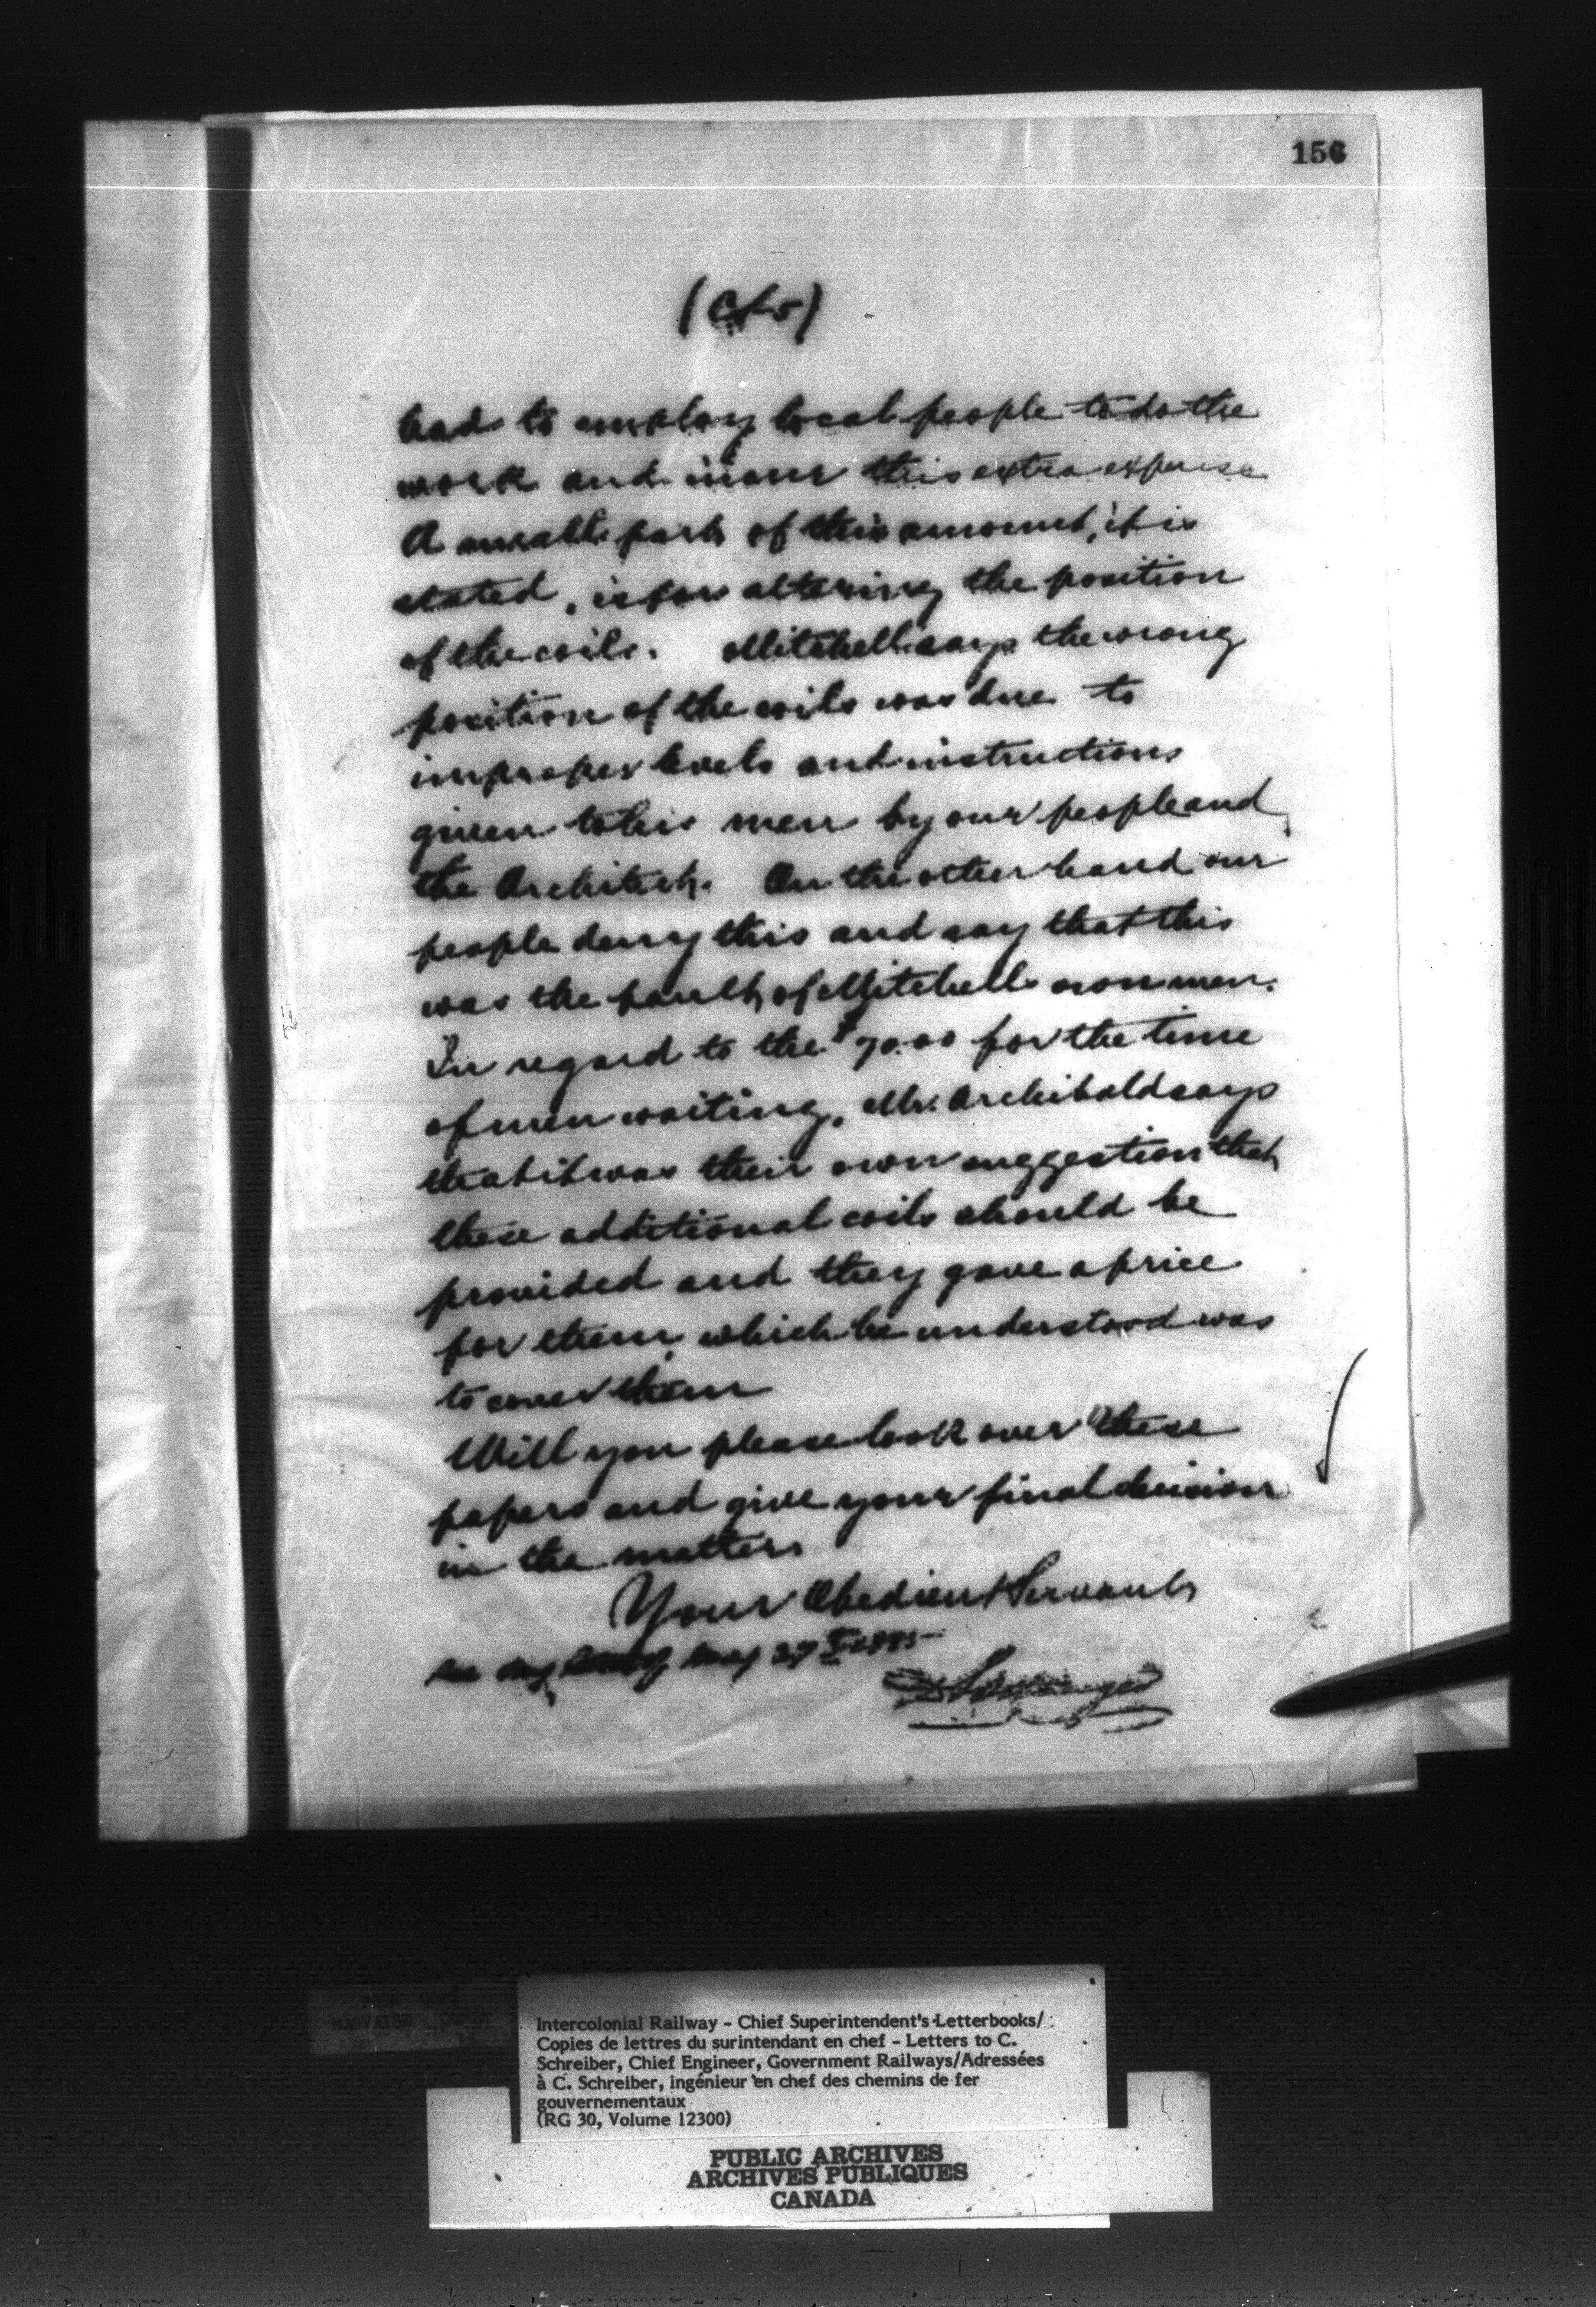 156
(C/5)
had to employ local people to do the
work and incur this extra expense
A small part of this amount, it is
stated, is for altering the position
of the coils. Mitchell says the wrong
position of the coils was due to
improper levels and instructions
given to his men by our people and
the Architect. On the other hand our
people deny this and say that this
was the fault of Mitchells own men.
In regard to the $70.00 for the time
of men waiting, Mr. Archibald says
that it was their own suggestion that
these additional coils should be
provided and they gave a price
for them, which he understood was
to cover them
Will you please look over these
papers and give your final decision
in the matter.
Your Obedient Servant,
see my May 27
Intercolonial Railway - Chief Superintendent's Letterbooks/
Copies de lettres du surintendant en chef - Letters to C.
Schreiber, Chief Engineer, Government Railways/Adressées
à C. Schreiber, ingénieur en chef des chemins de fer
gouvernementaux
(RG 30, Volume 12300)
PUBLIC ARCHIVES
ARCHIVES PUBLIQUES
CANADA